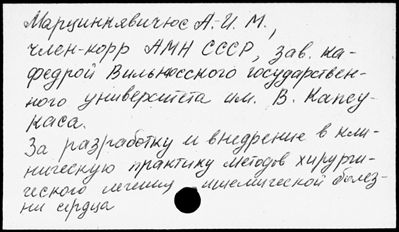 Марцинкявичюс А.-И. М.,
член-корр АМН СССР, зав. ка-
федрой Вильнюсского государствен-
ного университета им. В. Капсу-
каса.
За разработку и внедрение в кли-
ническую практику методов хирурги-
ческого лечения ишемической болез-
ни сердца